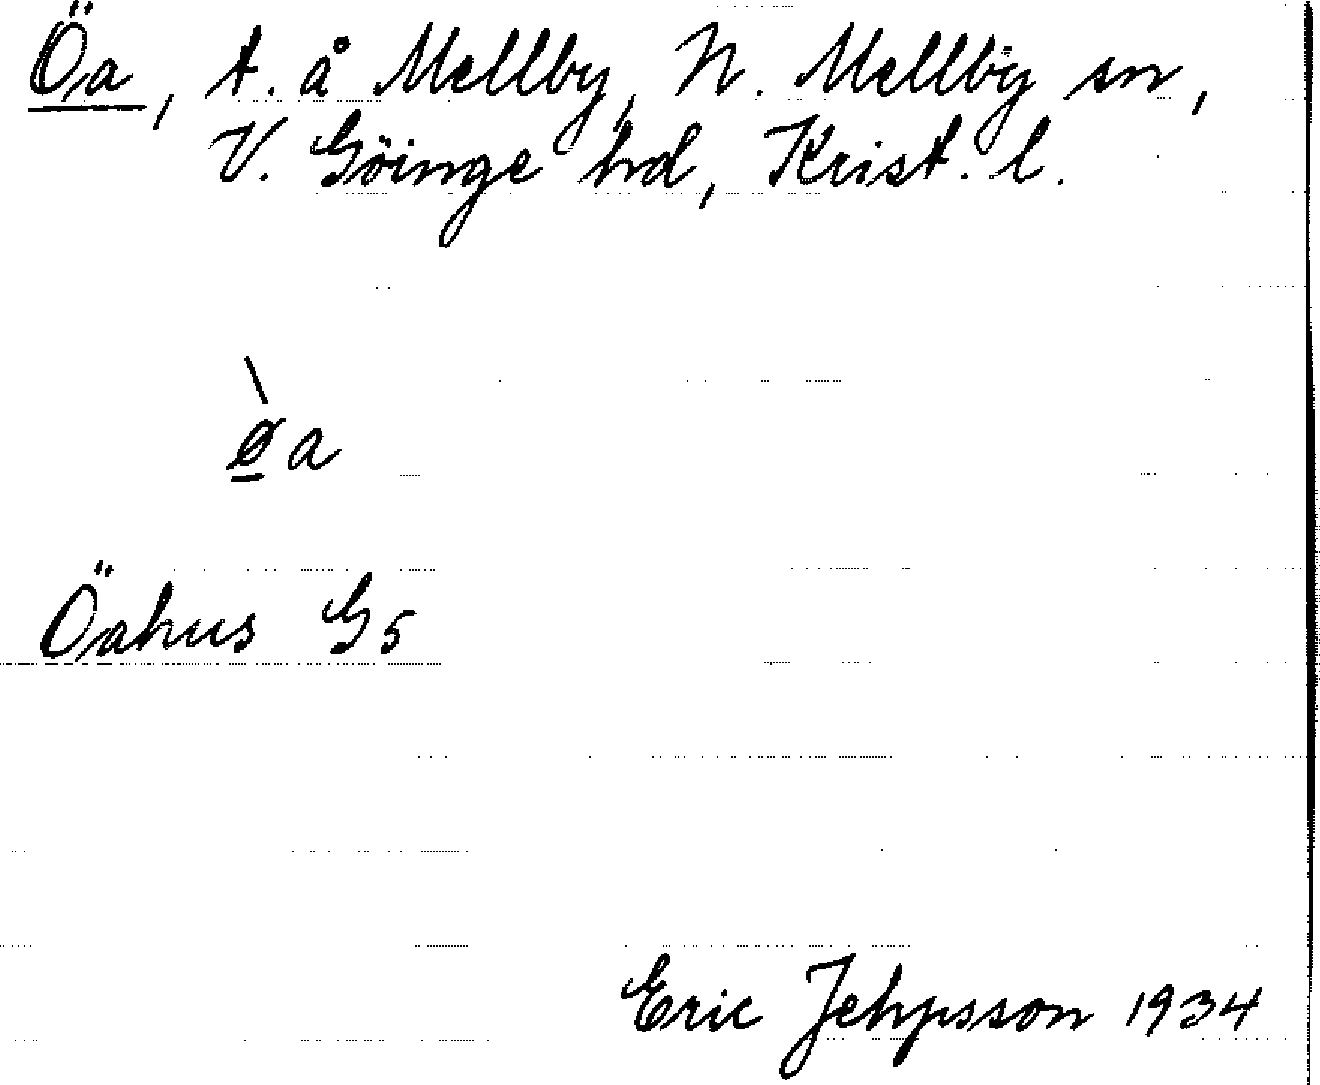 Öa, t. å Mellby, N. Mellby sn,
V. Göinge hd, Krist. l.
ø̲̀a
Öahus G5
Eric Jehpsson 1934